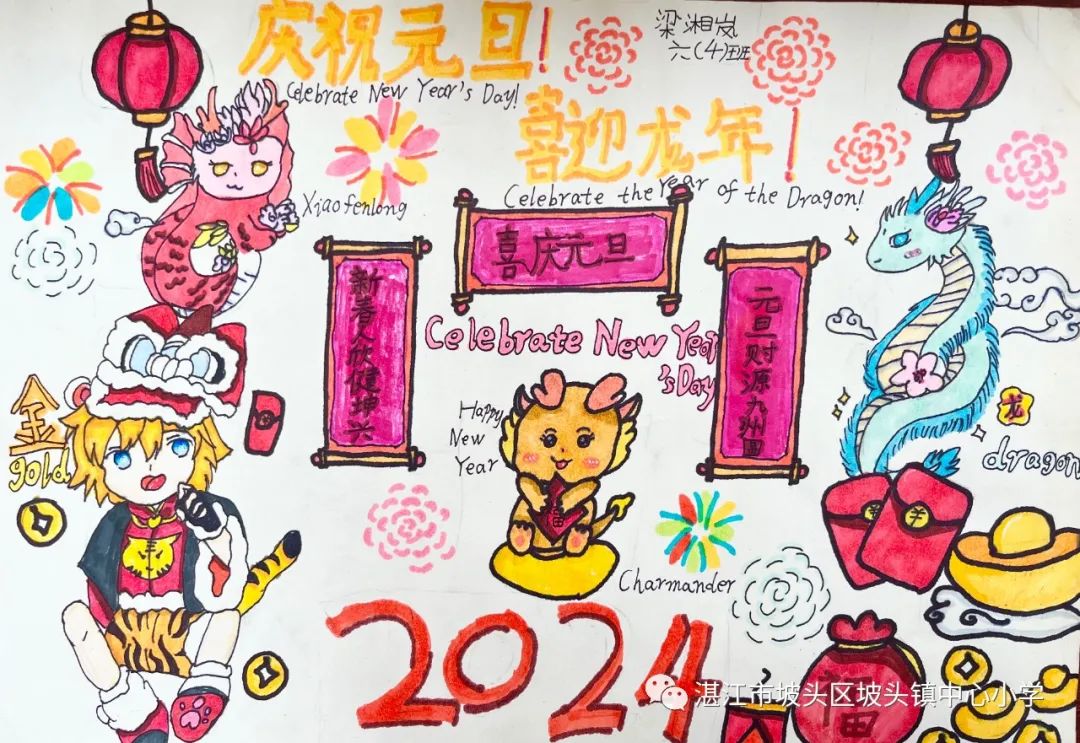 庆祝元旦!
Celebrate New Year's Day!
梁湘岚
六(4)班
喜迎龙年!
Celebrate the Year of the Dragon!
Xiaofenlong
喜庆元旦
新春人欣健坤兴
元旦财源九州圆
Celebrate New Year
's Day
Happy
New
Year
金
gold
福
龙
dragon
Charmander
2024
福
湛江市坡头区坡头镇中心小学